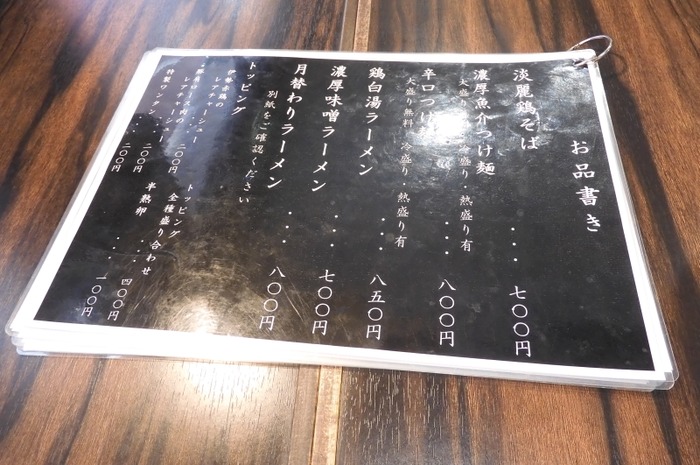 お品書き
淡麗鶏そば ・・・ 七〇〇円
濃厚魚介つけ麺
大盛り 冷盛り・熱盛り有
辛口つけ ・・・ 八〇〇円
大盛り無料 冷盛り・熱盛り有
鶏白湯ラーメン ・・・ 八五〇円
濃厚味噌ラーメン ・・・ 七〇〇円
月替わりラーメン ・・・ 八〇〇円
別紙をご確認ください
トッピング
伊勢赤鶏の
レアチャーシュー 二〇〇円
豚肩ロース肉の
レアチャーシュー 二〇〇円
特製ワンタン ・・・ 二〇〇円
トッピング
全種盛り合わせ ・・・ 四〇〇円
半熟卵 ・・・ 一〇〇円